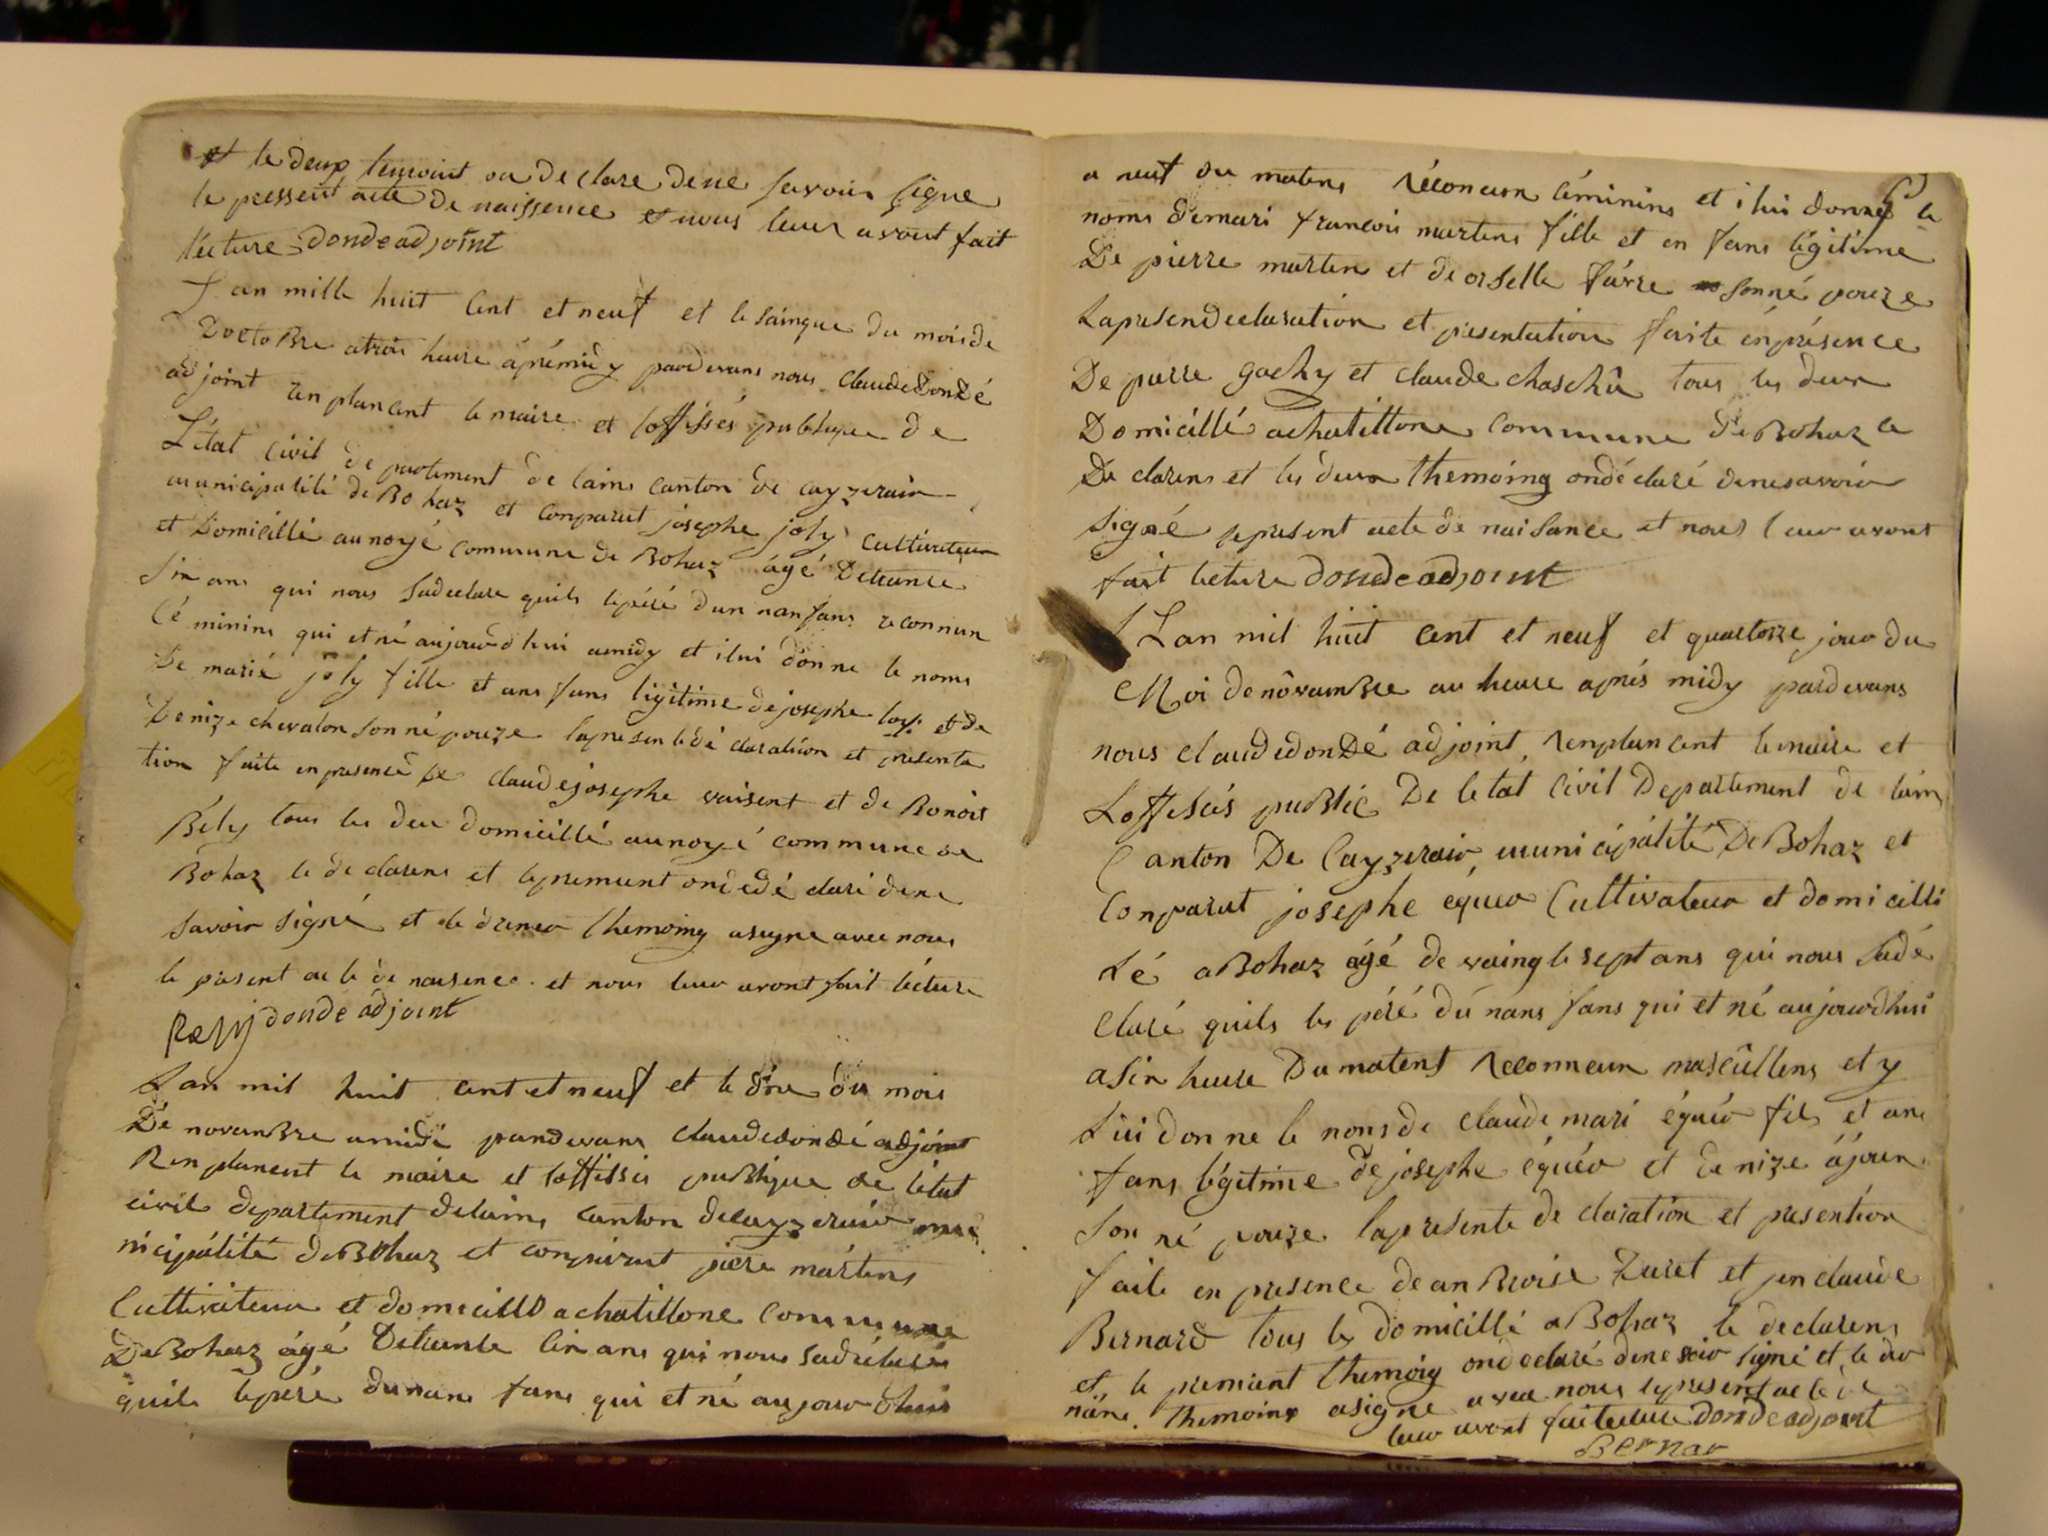 et le deux temoint on declare dene savoir signe
le pressent acte de naissence et nous leur avont fait
lecture dondeadjoint
Lan mille huit Cent et neuf et le sainque du moi de
doctoBre atroi heure aprémidy pardevans nous claudedondé
adjoint renplancent le maire et loffissés publique de
Létat civil departement de lains canton de cayzerair
municipalité deBohaz et Conparut josephe joly Cultivateur
et Domicillié aunoyé commune de Bohaz âgé Detrante
six ans qui nous sadeclare quils lepéré dun nanfans reconnun
féminins qui etné aujourdhui amidy et ilui donne le noms
De marié joly fille et ans fans ligitime dejosephe joly et de
Denize chevalon sonnépouze laprésentedé claration et présenta
tion faite enpresence de claudejosephe vaisent et de Benois
Réty tous les deu domicillié aunoyé commune de
Bohaz le declarens et lepremient ondedé claré dene
savoir signé et le dreneu themoing asigne avec nous
le présent acte de naisence et nous leur avont fait lecture
Rety donde adjoint
Lan mil huit cent et neuf et le dix du mois
De novanBre amidi pardevans claudedondé adjoint
Renplancent le maire et loffissié publique de létat
civil departement delains canton decayzeriair mu
nicipálité deBohaz et conparut piere mártins
Cultivateur et domicillié achatillone commune
DeBohaz âgé Detrante cin ans qui nous sadéclaré
quils lepéré dunans fans qui et né aujourdhui
a neuf du matens réconeun féminins et i lui donné le
noms demari françois martens fille et en fans légitime
De pierre marten et de orselle favre sonné pouze
Lapresendeclaration et presentation faite enprésence
De pierre gachy et claude chaschû tous les deux
Domicillié achatillone commune de Bohaz le
De clarens et les deux themoing ondéclaré denesavoir
signé lepresent acte de naisance et nous leur avont
fait lecture dondeadjoint
Lan mil huit cent et neuf et quartorze jour du
Moi de nôvamBre au heure aprés midy pardevans
nous claudedondé adjoint renplancent lemaire et
Loffisiés puBlic De letat civil Departement de lain
Canton De Cayzeriair municipálité De Bohaz et
Conparut josephe équio Cultivateur et domicilli
Lé aBohaz âgé de vaingte septans qui nous sadé
Claré quils les péré dú nans fans qui et né aujourdhui
asix heure Du matent reconneun mascúllens et y
Lui don ne le noms de claude mari équio fils et ans
fans légitime dejosephe équio et denize ajoun
son né pouze lapresente de claration et presention
faite en presence de an Broise Zuret et jenclaude
Bernard tous les domicillé aBohaz le declarens
et le premient themoig ondeclaré denesavoir signé et le du
niéne themoins asigne avec nous lepresent acte de
leur avont faitlecture dondeadjoint
Bernar